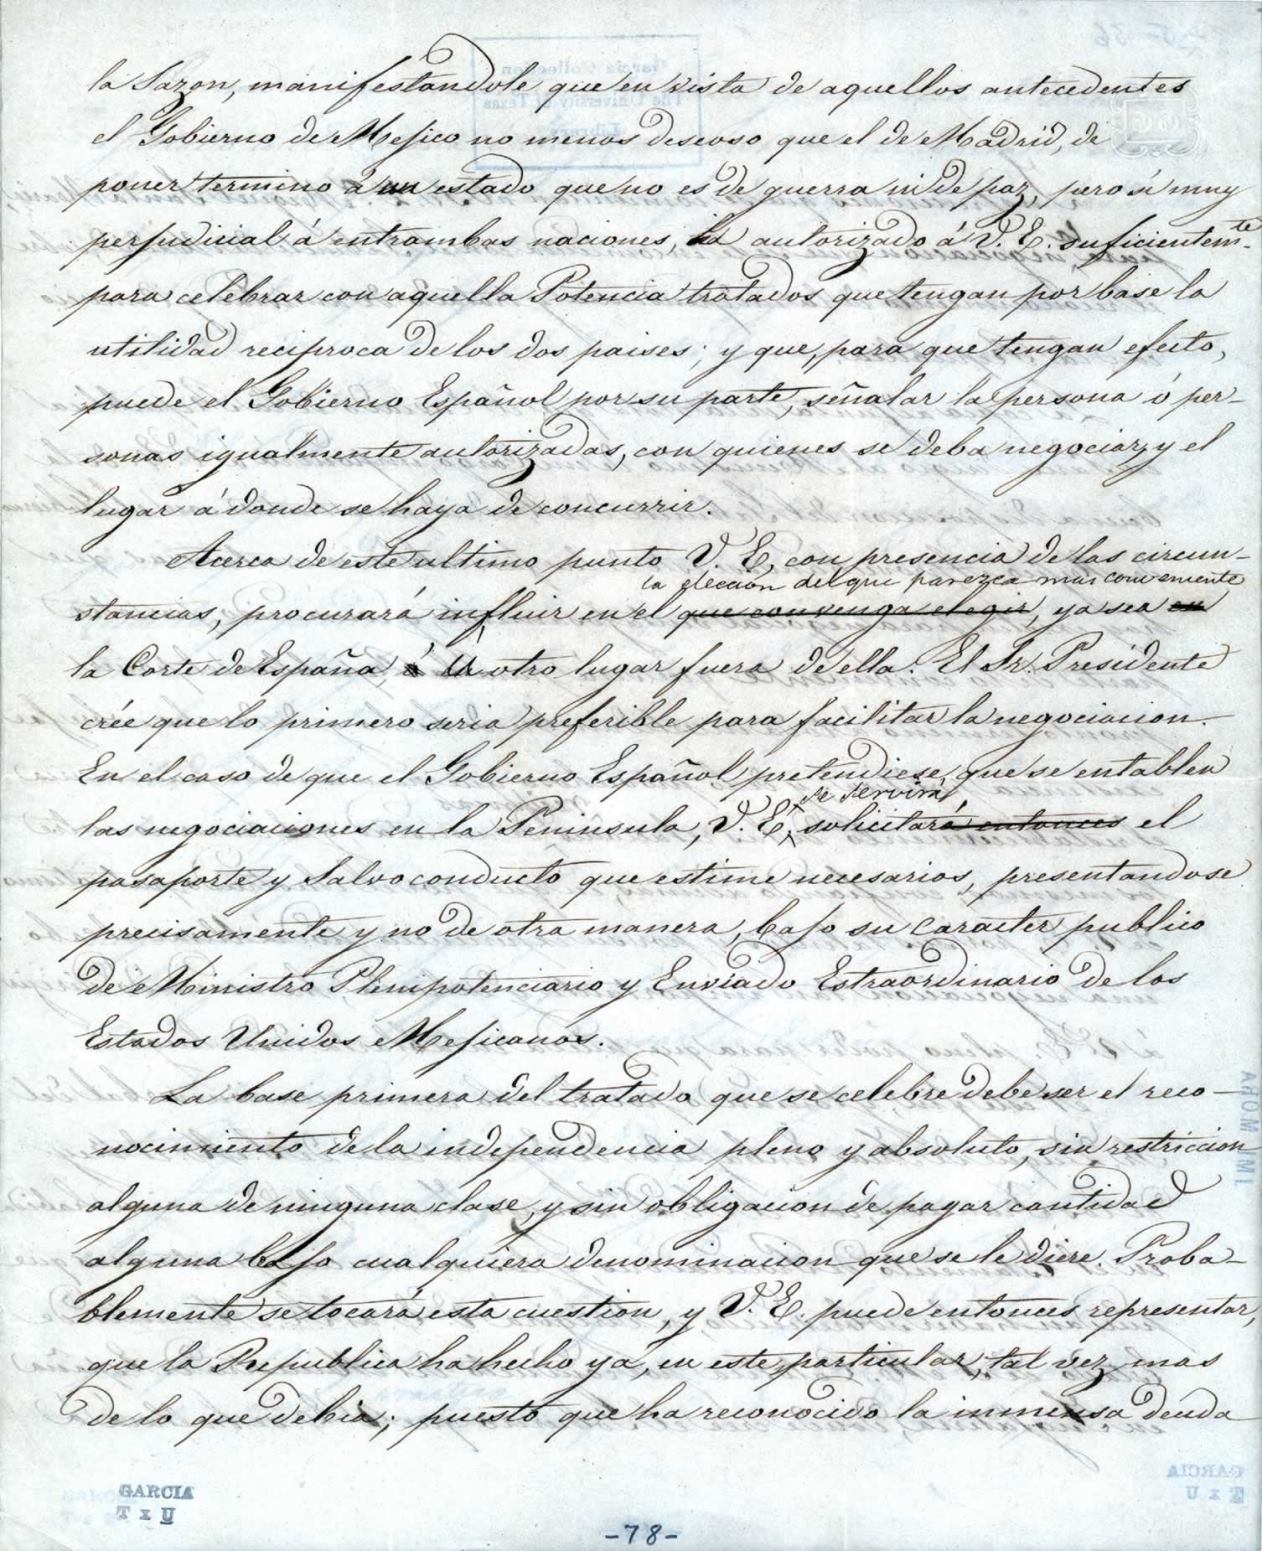 la Sazon, manifestandole que en vista de aquellos antecedentes
el Gobierno de Mejico no menos deseoso que el de Madrid, de
poner termino á un estado que no es de guerra ni de paz, pero si muy
perjudicial á entrambas naciones, ha autorizado á V. E. suficientemte.
para celebrar con aquella Potencia tratados que tengan por base la
utilidad reciproca de los dos paises; y que, para que tengan efecto,
puede el Gobierno Español por su parte, señalar la persona ó per-
sonas igualmente autorizadas, con quienes se deba negociar, y el
lugar á donde se haya de concurrir.
Acerca de este ultimo punto V. E, con presencia de las circun-
la eleccion del que parezca mas conveniente
stancias, procurará influir en el que convenga elegir, ya sea en
la Corte de España, ó u otro lugar fuera de ella. El Sr. Presidente
crée que lo primero seria preferible para facilitar la negociacion.
En el caso de que el Gobierno Español pretendiese, que se entablen
se servirá
las negociaciones en la Peninsula, V. E, solicitará entonces el
pasaporte y Salvo conducto que estime necesarios, presentandose
precisamente y no de otra manera, bajo su caracter publico
de Ministro Plenipotenciario y Enviado Estraordinario de los
Estados Unidos Mejicanos.
La base primera del tratado que se celebre debe ser el reco-
nocimiento de la independencia pleno y absoluto, sin restriccion
alguna de ninguna clase, y sin obligacion de pagar cantidad
alguna bajo cualquiera denominacion que se le diere. Proba-
blemente se tocará esta cuestion, y V. E. puede entonces representar,
que la Republica ha hecho ya, en este particular, tal vez mas
de lo que debia; puesto que ha reconocido la inmensa deuda
GARCIA
T x U
-78-